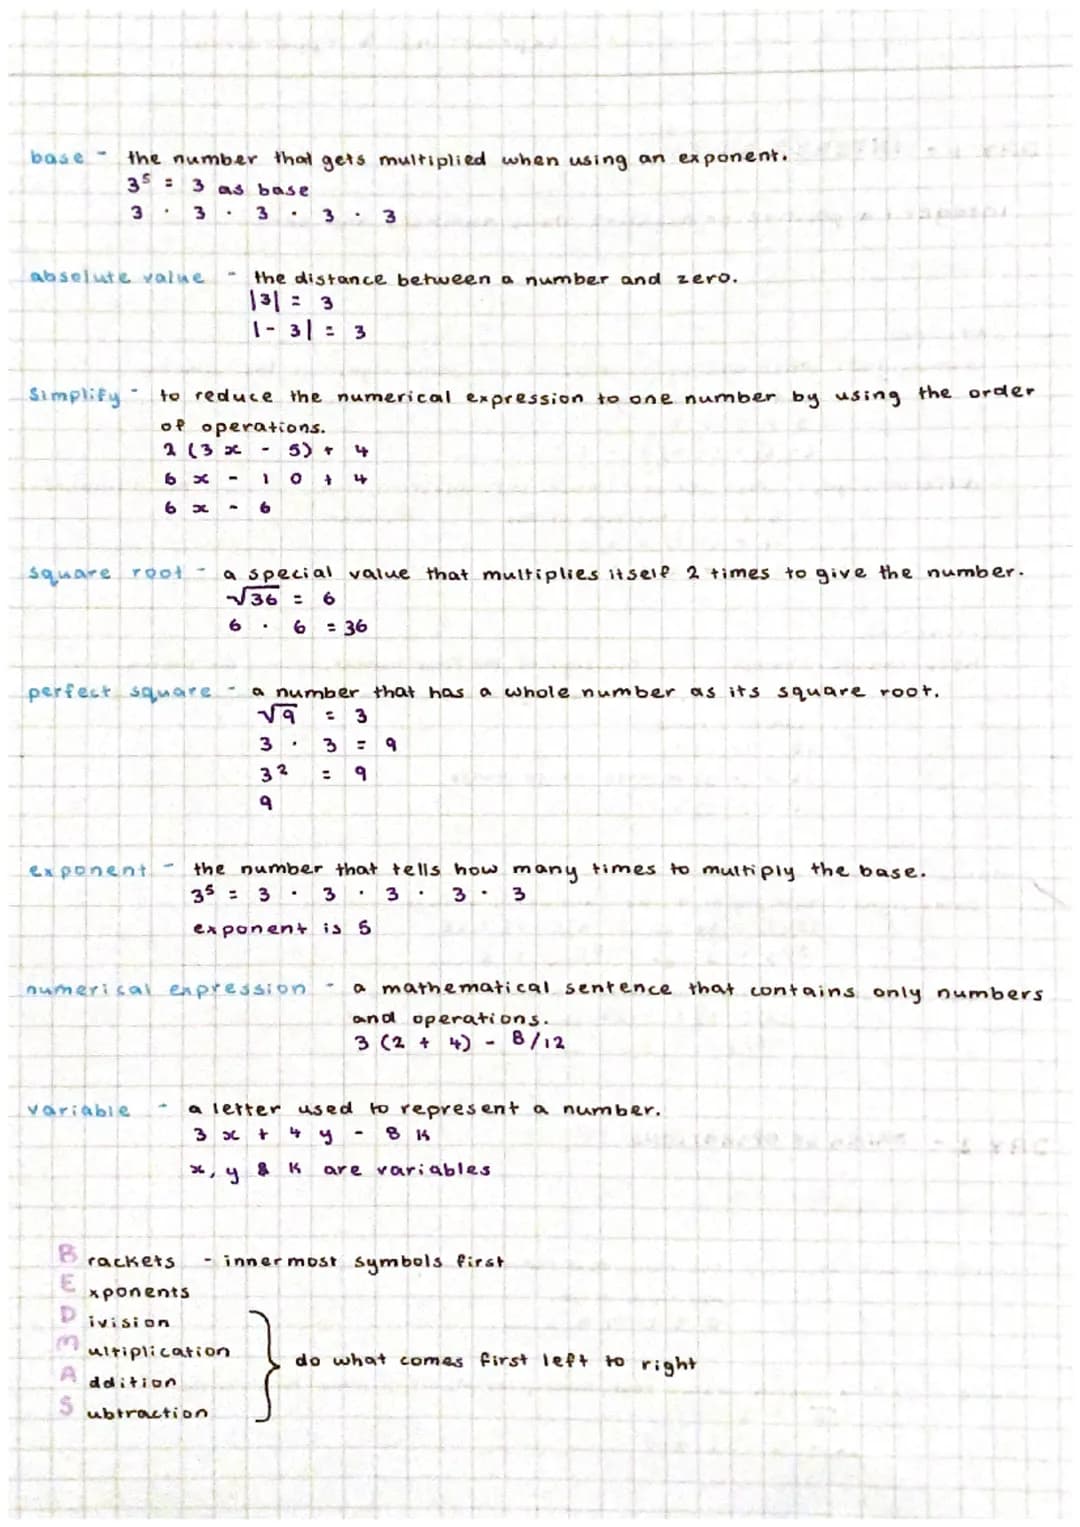 base - the number that gets multiplied when using an exponent.
3⁵ = 3 as base
3 · 3 · 3 · 3 · 3
absolute value - the distance between a number and zero.
|3| = 3
|-3| = 3
Simplify - to reduce the numerical expression to one number by using the order
of operations.
2 (3x - 5) + 4
6x - 10 + 4
6x - 6
square root - a special value that multiplies itself 2 times to give the number.
√36 = 6
6 · 6 = 36
perfect square - a number that has a whole number as its square root.
√9 = 3
3 · 3 = 9
3² = 9
9
exponent - the number that tells how many times to multiply the base.
3⁵ = 3 · 3 · 3 · 3 · 3
exponent is 5
numerical expression - a mathematical sentence that contains only numbers
and operations.
3 (2 + 4) - 8/12
variable - a letter used to represent a number.
3x + 4y - 8k
x, y & k are variables
Brackets - innermost symbols first
Exponents
Division
Multiplication
do what comes first left to right
Addition
Subtraction